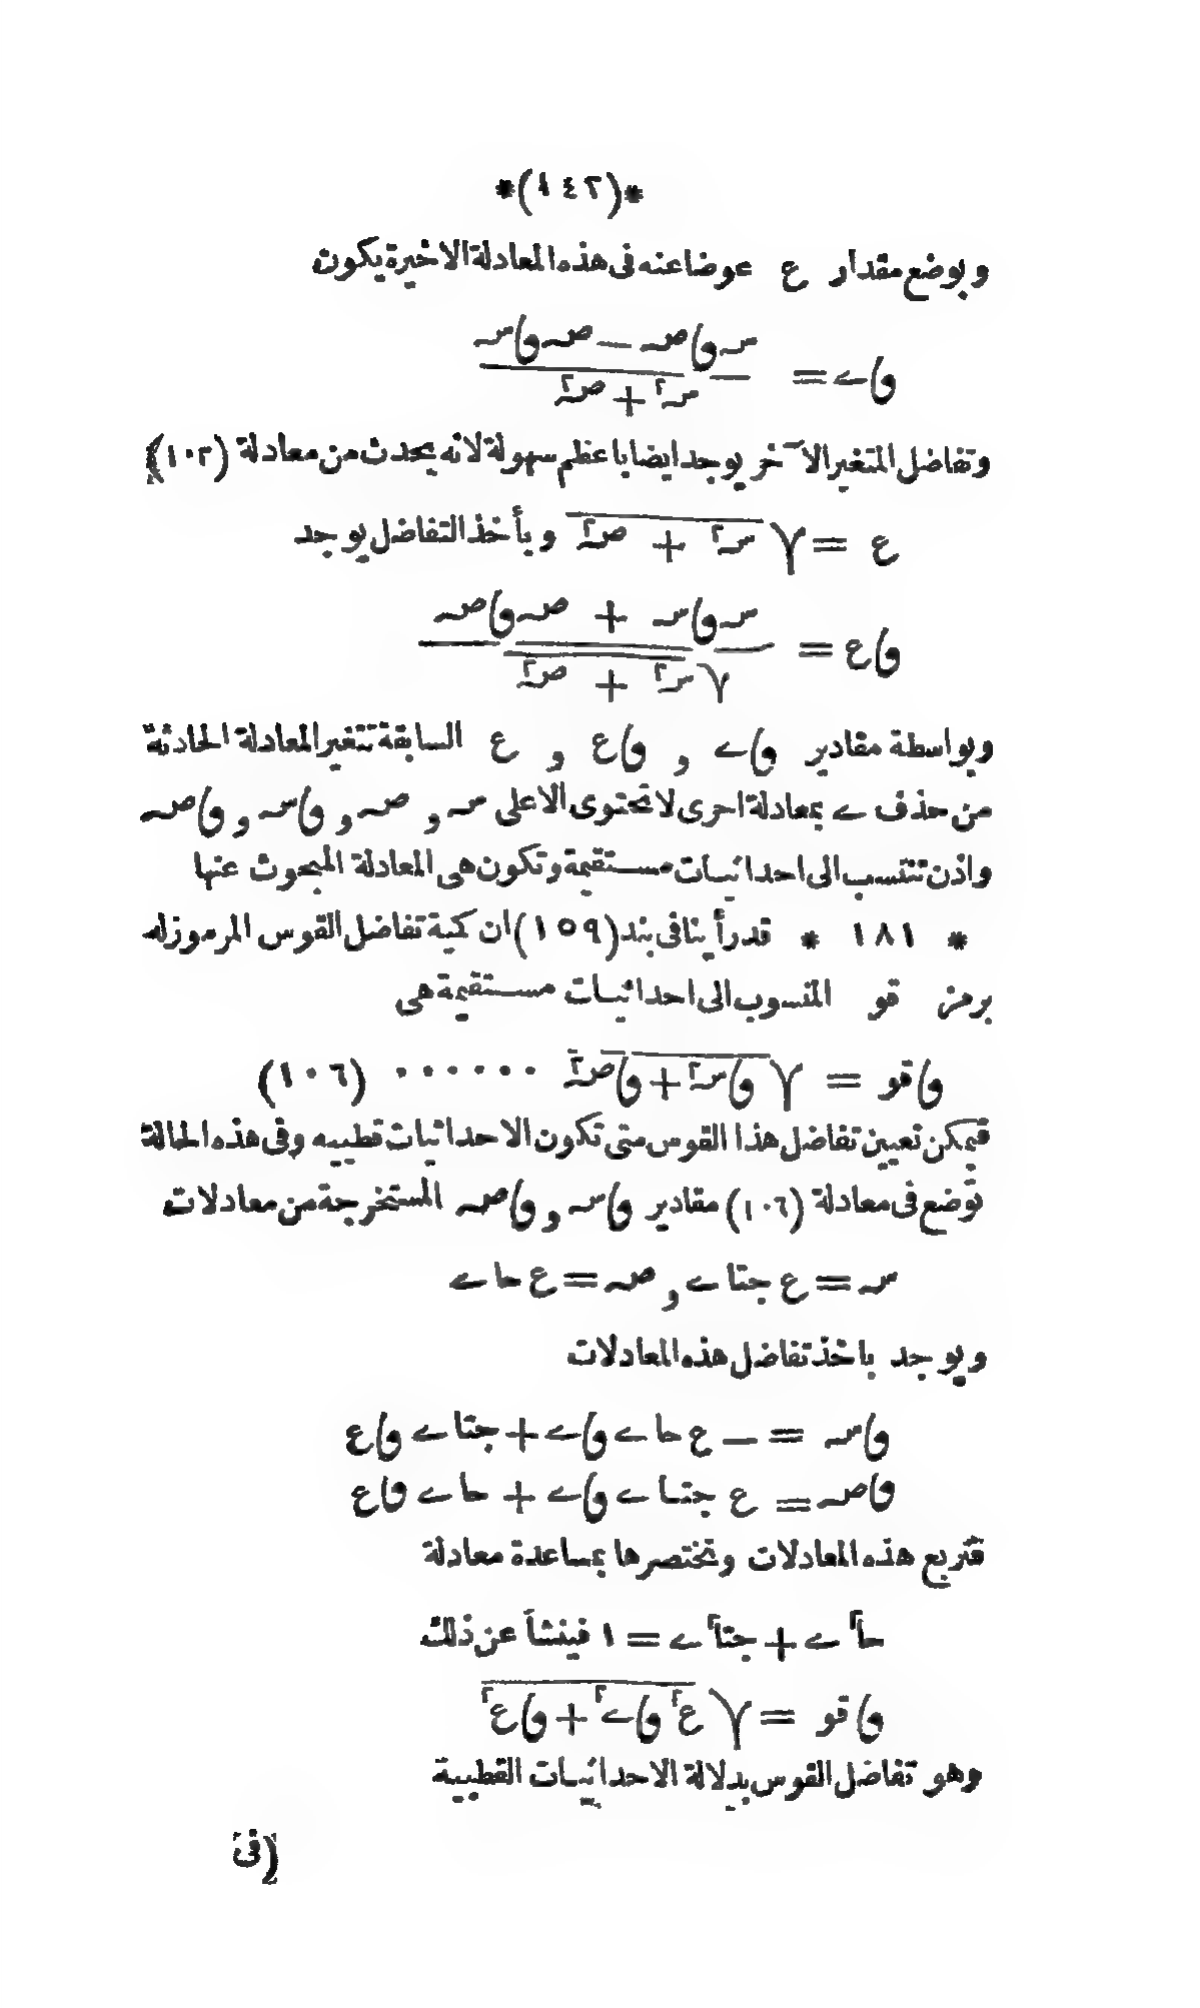 *(١٤٢)*
وبوضع مقدار ع عوضا عنه فى هذه المعادلة الاخيرة يكون
ﻭ(ے = (سہ ﻭ(صہ — صہ ﻭ(سہ) / (سہ٢ + صہ٢)
وتفاضل المتغير الآخر يوجد ايضا باعظم سهولة لانه يحدث من معادلة (١٠٣)
ع = √(سہ٢ + صہ٢) وبأخذ التفاضل يوجد
ﻭ(ع = (سہ ﻭ(سہ + صہ ﻭ(صہ) / √(سہ٢ + صہ٢)
وبواسطة مقادير ﻭ(ے و ﻭ(ع و ع السابقة تتغير المعادلة الحادثة
من حذف ے بمعادلة اخرى لا تحتوى الا على سہ و صہ و ﻭ(سہ و ﻭ(صہ
واذن تنتسب الى احداثيات مستقيمة وتكون هى المعادلة المبحوث عنها
* ١٨١ * قد رأينا فى بند (١٥٩) ان كمية تفاضل القوس المرموز له
برمز قو المنسوب الى احداثيات مستقيمة هى
ﻭ(قو = √(ﻭ(سہ٢ + ﻭ(صہ٢) ۰۰۰۰۰۰ (١٠٦)
فيمكن تعيين تفاضل هذا القوس متى تكون الاحداثيات قطبيه وفى هذه الحالة
توضع فى معادلة (١٠٦) مقادير ﻭ(سہ و ﻭ(صہ المستخرجة من معادلات
سہ = ع جتاے و صہ = ع حاے
ويوجد باخذ تفاضل هذه المعادلات
ﻭ(سہ = — ع حاے ﻭ(ے + جتاے ﻭ(ع
ﻭ(صہ = ع جتاے ﻭ(ے + حاے ﻭ(ع
فتربع هذه المعادلات وتختصرها بمساعدة معادلة
حا٢ے + جتا٢ے = ١ فينشأ عن ذلك
ﻭ(قو = √(ع٢ ﻭ(ے٢ + ﻭ(ع٢)
وهو تفاضل القوس بدلالة الاحداثيات القطبية
(فى